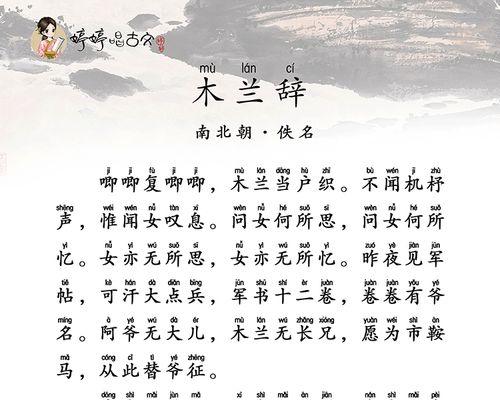 婷婷唱古文
mù lán cí
木兰辞
南北朝·佚名
jī jī fù jī jī mù lán dāng hù zhī bù wén jī zhù
唧唧复唧唧，木兰当户织。不闻机杼
shēng wéi wén nǚ tàn xī wèn nǚ hé suǒ sī wèn nǚ hé suǒ
声，惟闻女叹息。问女何所思，问女何所
yì nǚ yì wú suǒ sī nǚ yì wú suǒ yì zuó yè jiàn jūn
忆。女亦无所思，女亦无所忆。昨夜见军
tiě kè hán dà diǎn bīng jūn shū shí èr juàn juàn juàn yǒu yé
帖，可汗大点兵，军书十二卷，卷卷有爷
míng ā yé wú dà ér mù lán wú zhǎng xiōng yuàn wèi shì ān
名。阿爷无大儿，木兰无长兄，愿为市鞍
mǎ cóng cǐ tì yé zhēng
马，从此替爷征。
dōng shì mǎi jùn mǎ xī shì mǎi ān jiān nán shì mǎi pèi